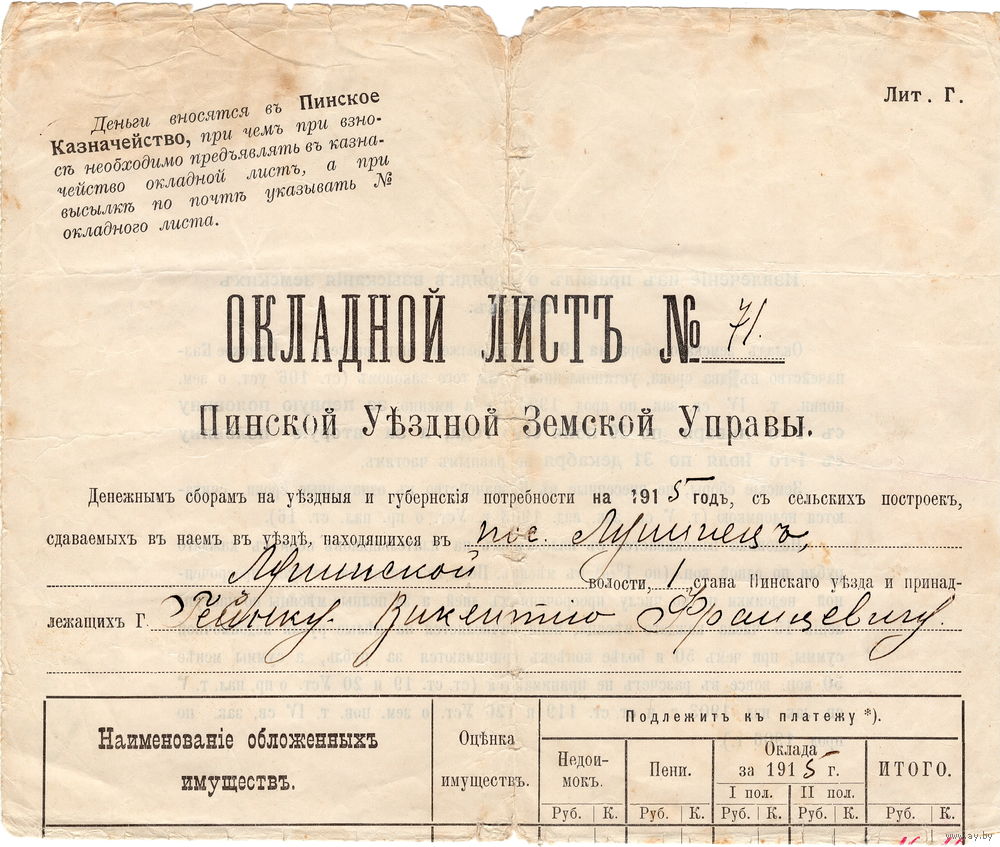 Деньги вносятся въ Пинское
Казначейство, при чемъ при взно-
сѣ необходимо предъявлять въ казна-
чейство окладной листъ, а при
высылкѣ по почтѣ указывать №
окладного листа.
Лит. Г.
ОКЛАДНОЙ ЛИСТЪ № 71.
Пинской Уѣздной Земской Управы.
Денежнымъ сборамъ на уѣздныя и губернскія потребности на 1915 годъ, съ сельскихъ построекъ,
сдаваемыхъ въ наемъ въ уѣздѣ, находящихся въ пос. Лунинецъ,
Лунинской волости 1 стана Пинскаго уѣзда и принад-
лежащихъ Г. Гейнку Викентію Францевичу.
Наименованіе обложенныхъ
имуществъ.
Оцѣнка
имуществъ.
Подлежитъ къ платежу *).
Недои-
мокъ.
Пени.
Оклада
за 1915 г.
I пол. II пол.
ИТОГО.
Руб. К. Руб. К. Руб. К. Руб. К. Руб. К.
www.ay.by